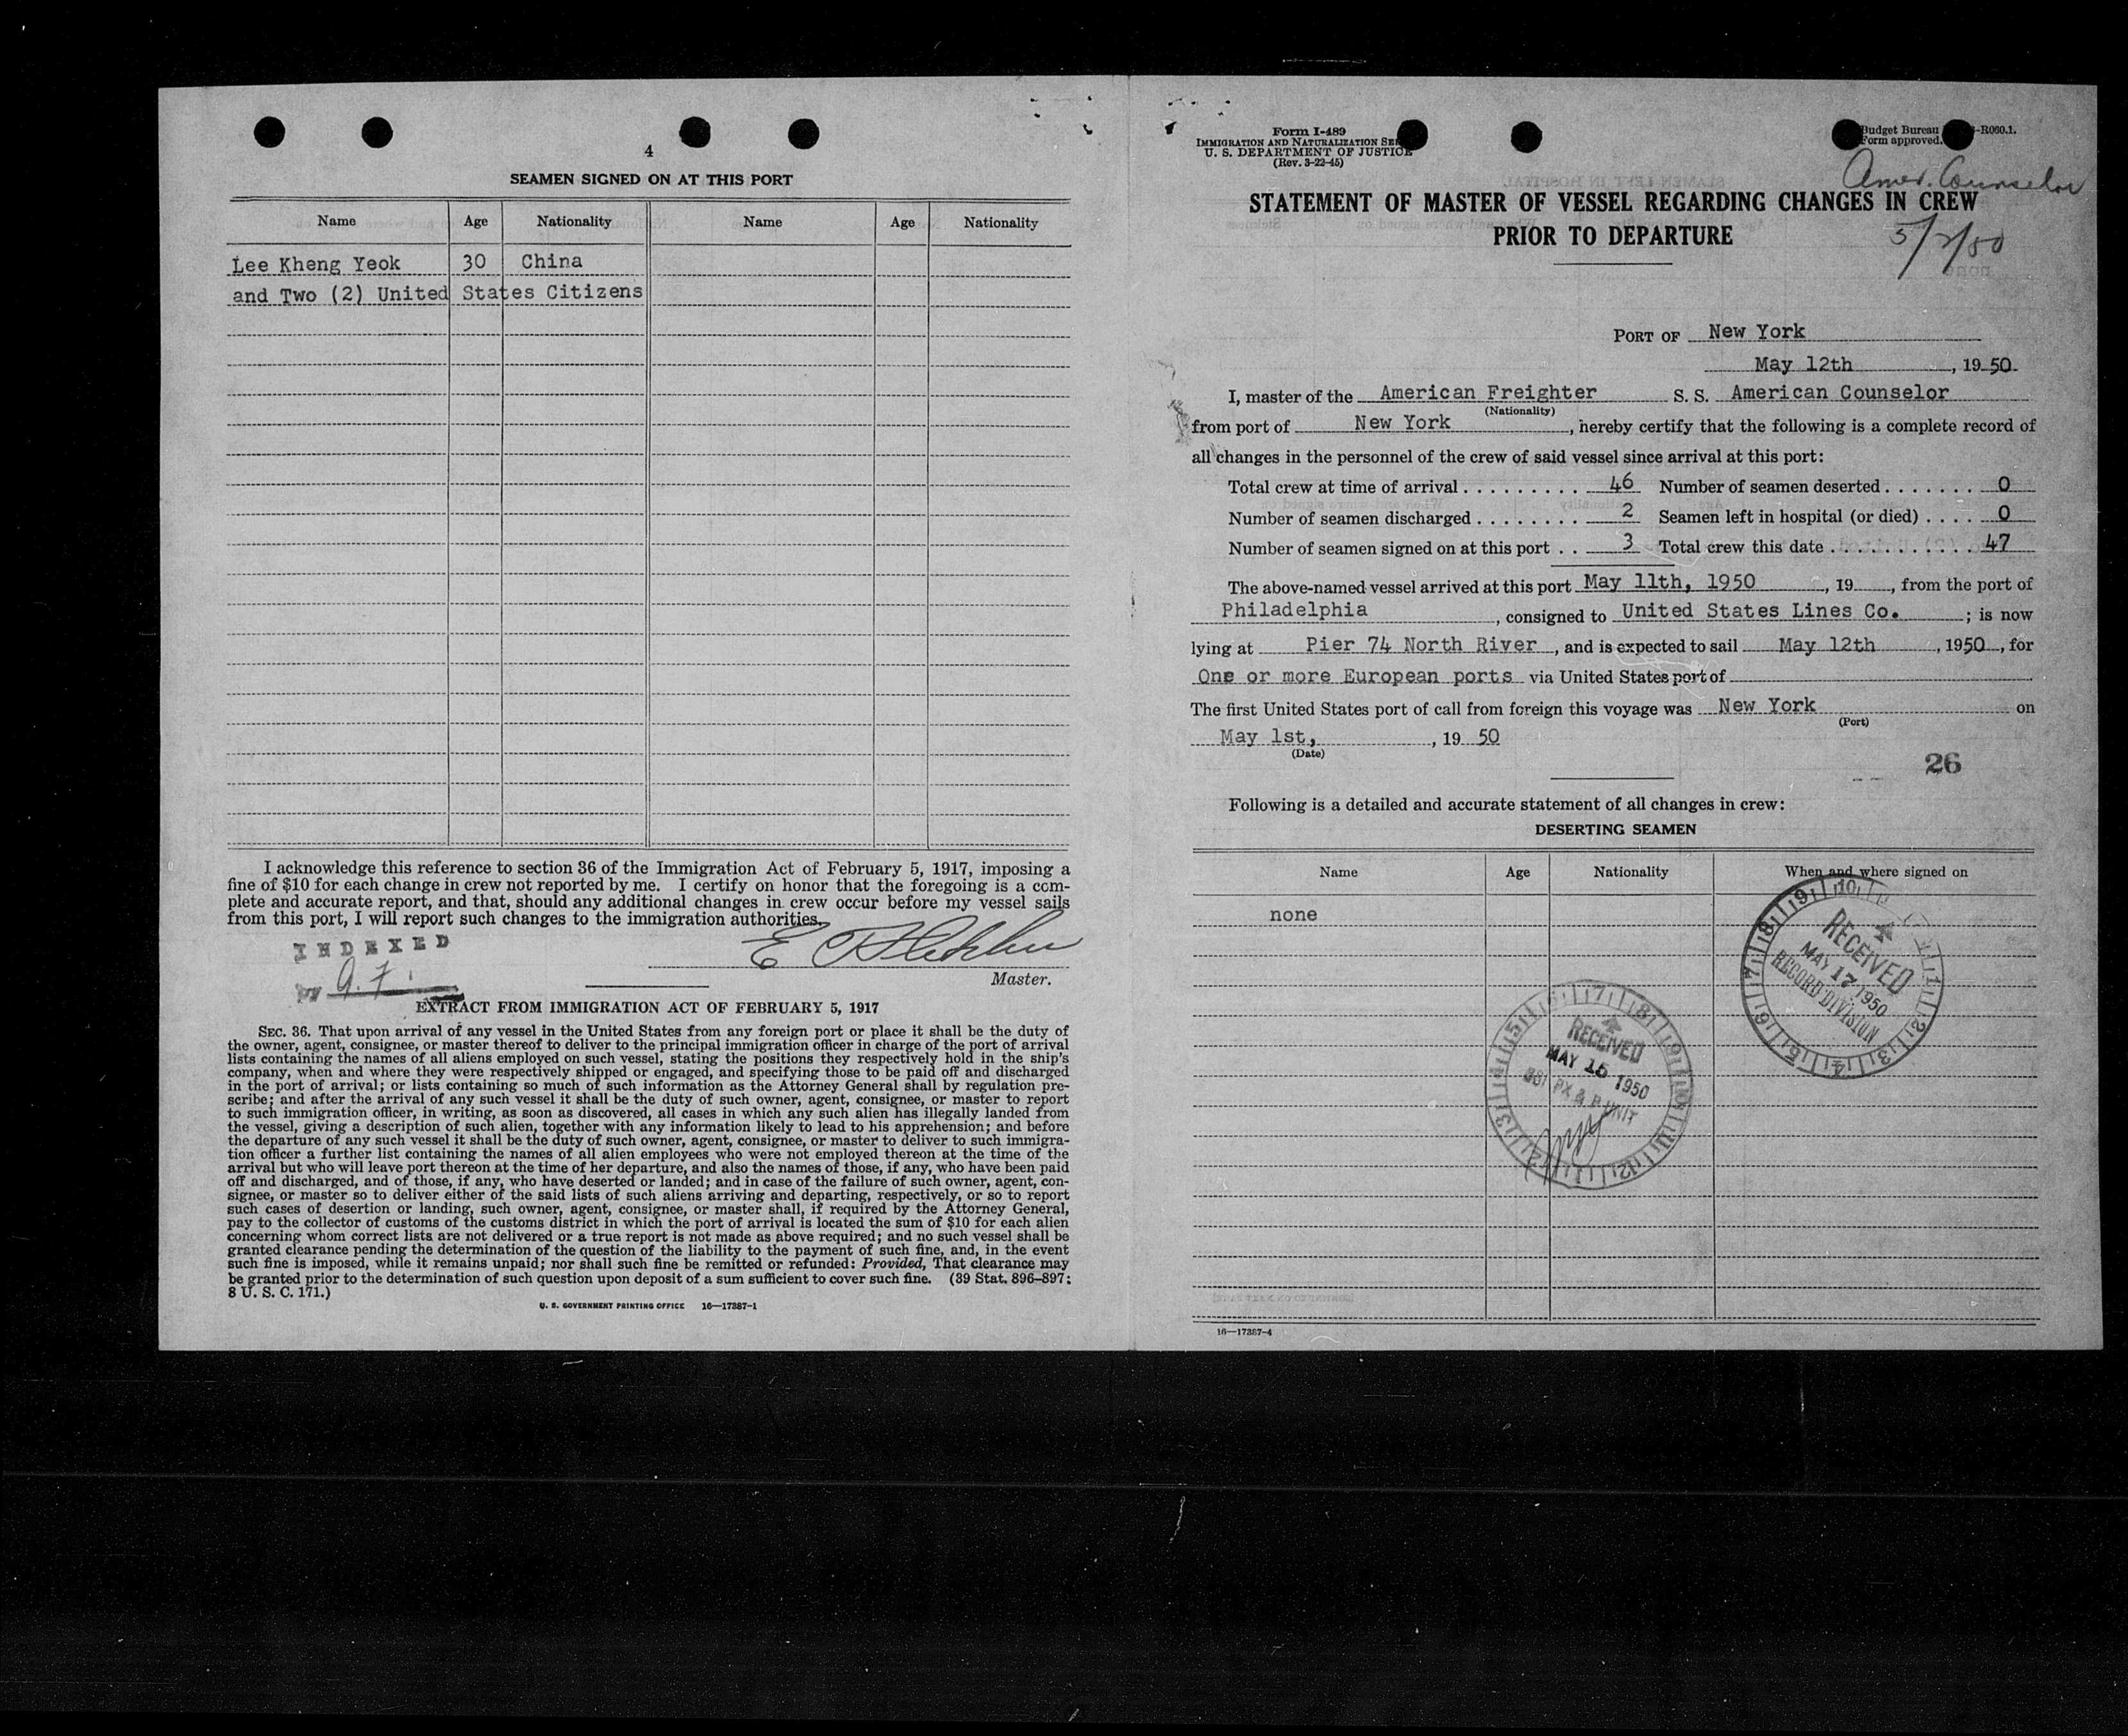 4
SEAMEN SIGNED ON AT THIS PORT
Name Age Nationality Name Age Nationality
Lee Kheng Yeok 30 China
and Two (2) United States Citizens
I acknowledge this reference to section 36 of the Immigration Act of February 5, 1917, imposing a
fine of $10 for each change in crew not reported by me. I certify on honor that the foregoing is a com-
plete and accurate report, and that, should any additional changes in crew occur before my vessel sails
from this port, I will report such changes to the immigration authorities.
INDEXED
Master.
EXTRACT FROM IMMIGRATION ACT OF FEBRUARY 5, 1917
SEC. 36. That upon arrival of any vessel in the United States from any foreign port or place it shall be the duty of
the owner, agent, consignee, or master thereof to deliver to the principal immigration officer in charge of the port of arrival
lists containing the names of all aliens employed on such vessel, stating the positions they respectively hold in the ship's
company, when and where they were respectively shipped or engaged, and specifying those to be paid off and discharged
in the port of arrival; or lists containing so much of such information as the Attorney General shall by regulation pre-
scribe; and after the arrival of any such vessel it shall be the duty of such owner, agent, consignee, or master to report
to such immigration officer, in writing, as soon as discovered, all cases in which any such alien has illegally landed from
the vessel, giving a description of such alien, together with any information likely to lead to his apprehension; and before
the departure of any such vessel it shall be the duty of such owner, agent, consignee, or master to deliver to such immigra-
tion officer a further list containing the names of all alien employees who were not employed thereon at the time of the
arrival but who will leave port thereon at the time of her departure, and also the names of those, if any, who have been paid
off and discharged, and of those, if any, who have deserted or landed; and in case of the failure of such owner, agent, con-
signee, or master so to deliver either of the said lists of such aliens arriving and departing, respectively, or so to report
such cases of desertion or landing, such owner, agent, consignee, or master shall, if required by the Attorney General,
pay to the collector of customs of the customs district in which the port of arrival is located the sum of $10 for each alien
concerning whom correct lists are not delivered or a true report is not made as above required; and no such vessel shall be
granted clearance pending the determination of the question of the liability to the payment of such fine, and, in the event
such fine is imposed, while it remains unpaid; nor shall such fine be remitted or refunded: Provided, That clearance may
be granted prior to the determination of such question upon deposit of a sum sufficient to cover such fine. (39 Stat. 896–897;
8 U. S. C. 171.)
U. S. GOVERNMENT PRINTING OFFICE 16—17387-1
Form I-489
IMMIGRATION AND NATURALIZATION
U. S. DEPARTMENT OF JUSTICE
(Rev. 3-22-45)
Budget Bureau -R060.1.
Form approved.
Amer. Counselor
STATEMENT OF MASTER OF VESSEL REGARDING CHANGES IN CREW
PRIOR TO DEPARTURE
PORT OF New York
May 12th, 1950
I, master of the American Freighter S. S. American Counselor
(Nationality)
from port of New York, hereby certify that the following is a complete record of
all changes in the personnel of the crew of said vessel since arrival at this port:
Total crew at time of arrival . . . . . . . . . . 46 Number of seamen deserted . . . . . . . 0
Number of seamen discharged . . . . . . . . 2 Seamen left in hospital (or died) . . . . 0
Number of seamen signed on at this port . . 3 Total crew this date . . . . . . . . . . . . 47
The above-named vessel arrived at this port May 11th, 1950, 19, from the port of
Philadelphia, consigned to United States Lines Co.; is now
lying at Pier 74 North River, and is expected to sail May 12th, 1950, for
One or more European ports via United States port of
The first United States port of call from foreign this voyage was New York on
(Port)
May 1st, , 19 50
(Date)
26
Following is a detailed and accurate statement of all changes in crew:
DESERTING SEAMEN
Name Age Nationality When and where signed on
none
RECEIVED
MAY 17 1950
RECORD DIVISION
RECEIVED
MAY 16 1950
16—17387-4